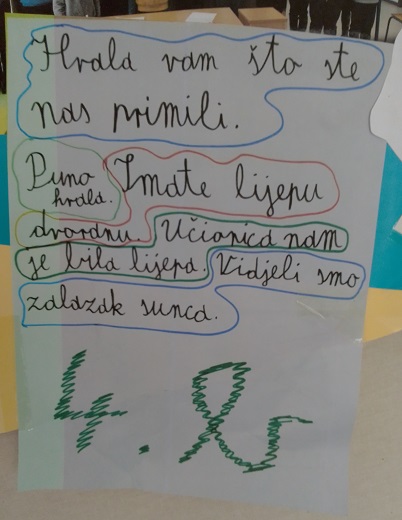 Hvala vam što ste
nas primili.
Puno hvala. Imate lijepu
dvoranu. Učionica nam
je bila lijepa. Vidjeli smo
zalazak sunca.
4. R